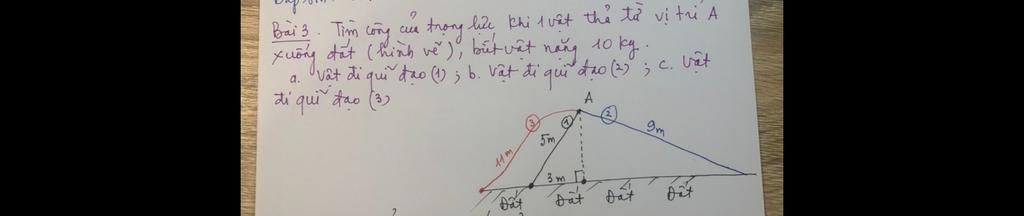 Bài 3. Tìm công của trọng lực khi 1 vật thả từ vị trí A
xuống đất (hình vẽ), biết vật nặng 10 kg.
a. Vật đi quĩ đạo (1) ; b. Vật đi quĩ đạo (2) ; c. Vật
đi quĩ đạo (3)
A
3 1 2
5m 9m
11m
3m
Đất Đất Đất Đất